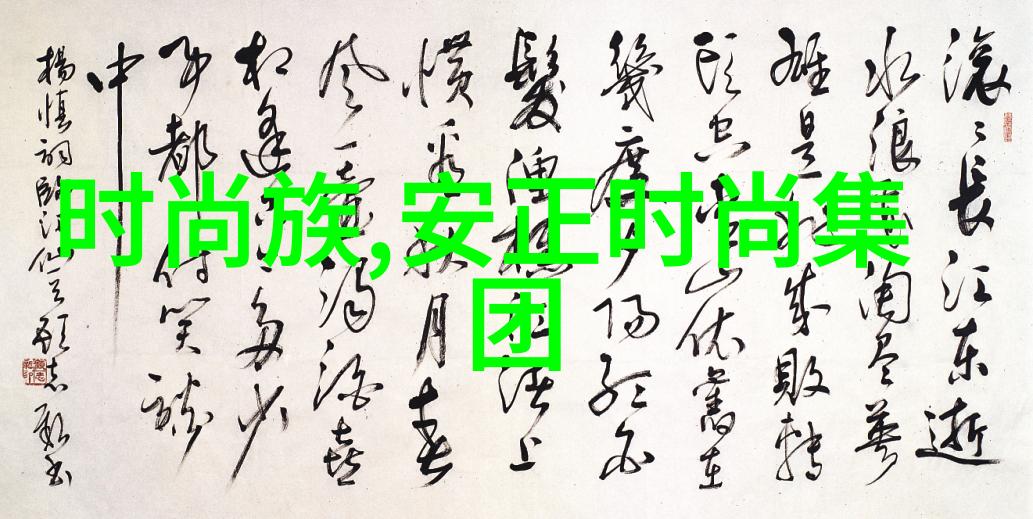 时尚族,安正时尚集
团
滚〻長江东逝
水浪花淘尽英
雄是非成败转
头空青山依舊在
幾度夕阳红白
髮渔樵江渚上
惯看秋月春
风一壶浊酒喜
相逢古今多少
事都付笑谈
中
楊慎词临江仙